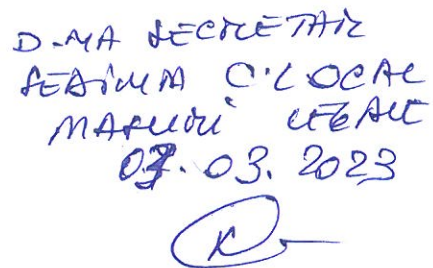 D-NA SECRETAR
SEDINTA C.LOCAL
MASURI LEGALE
07.03.2023